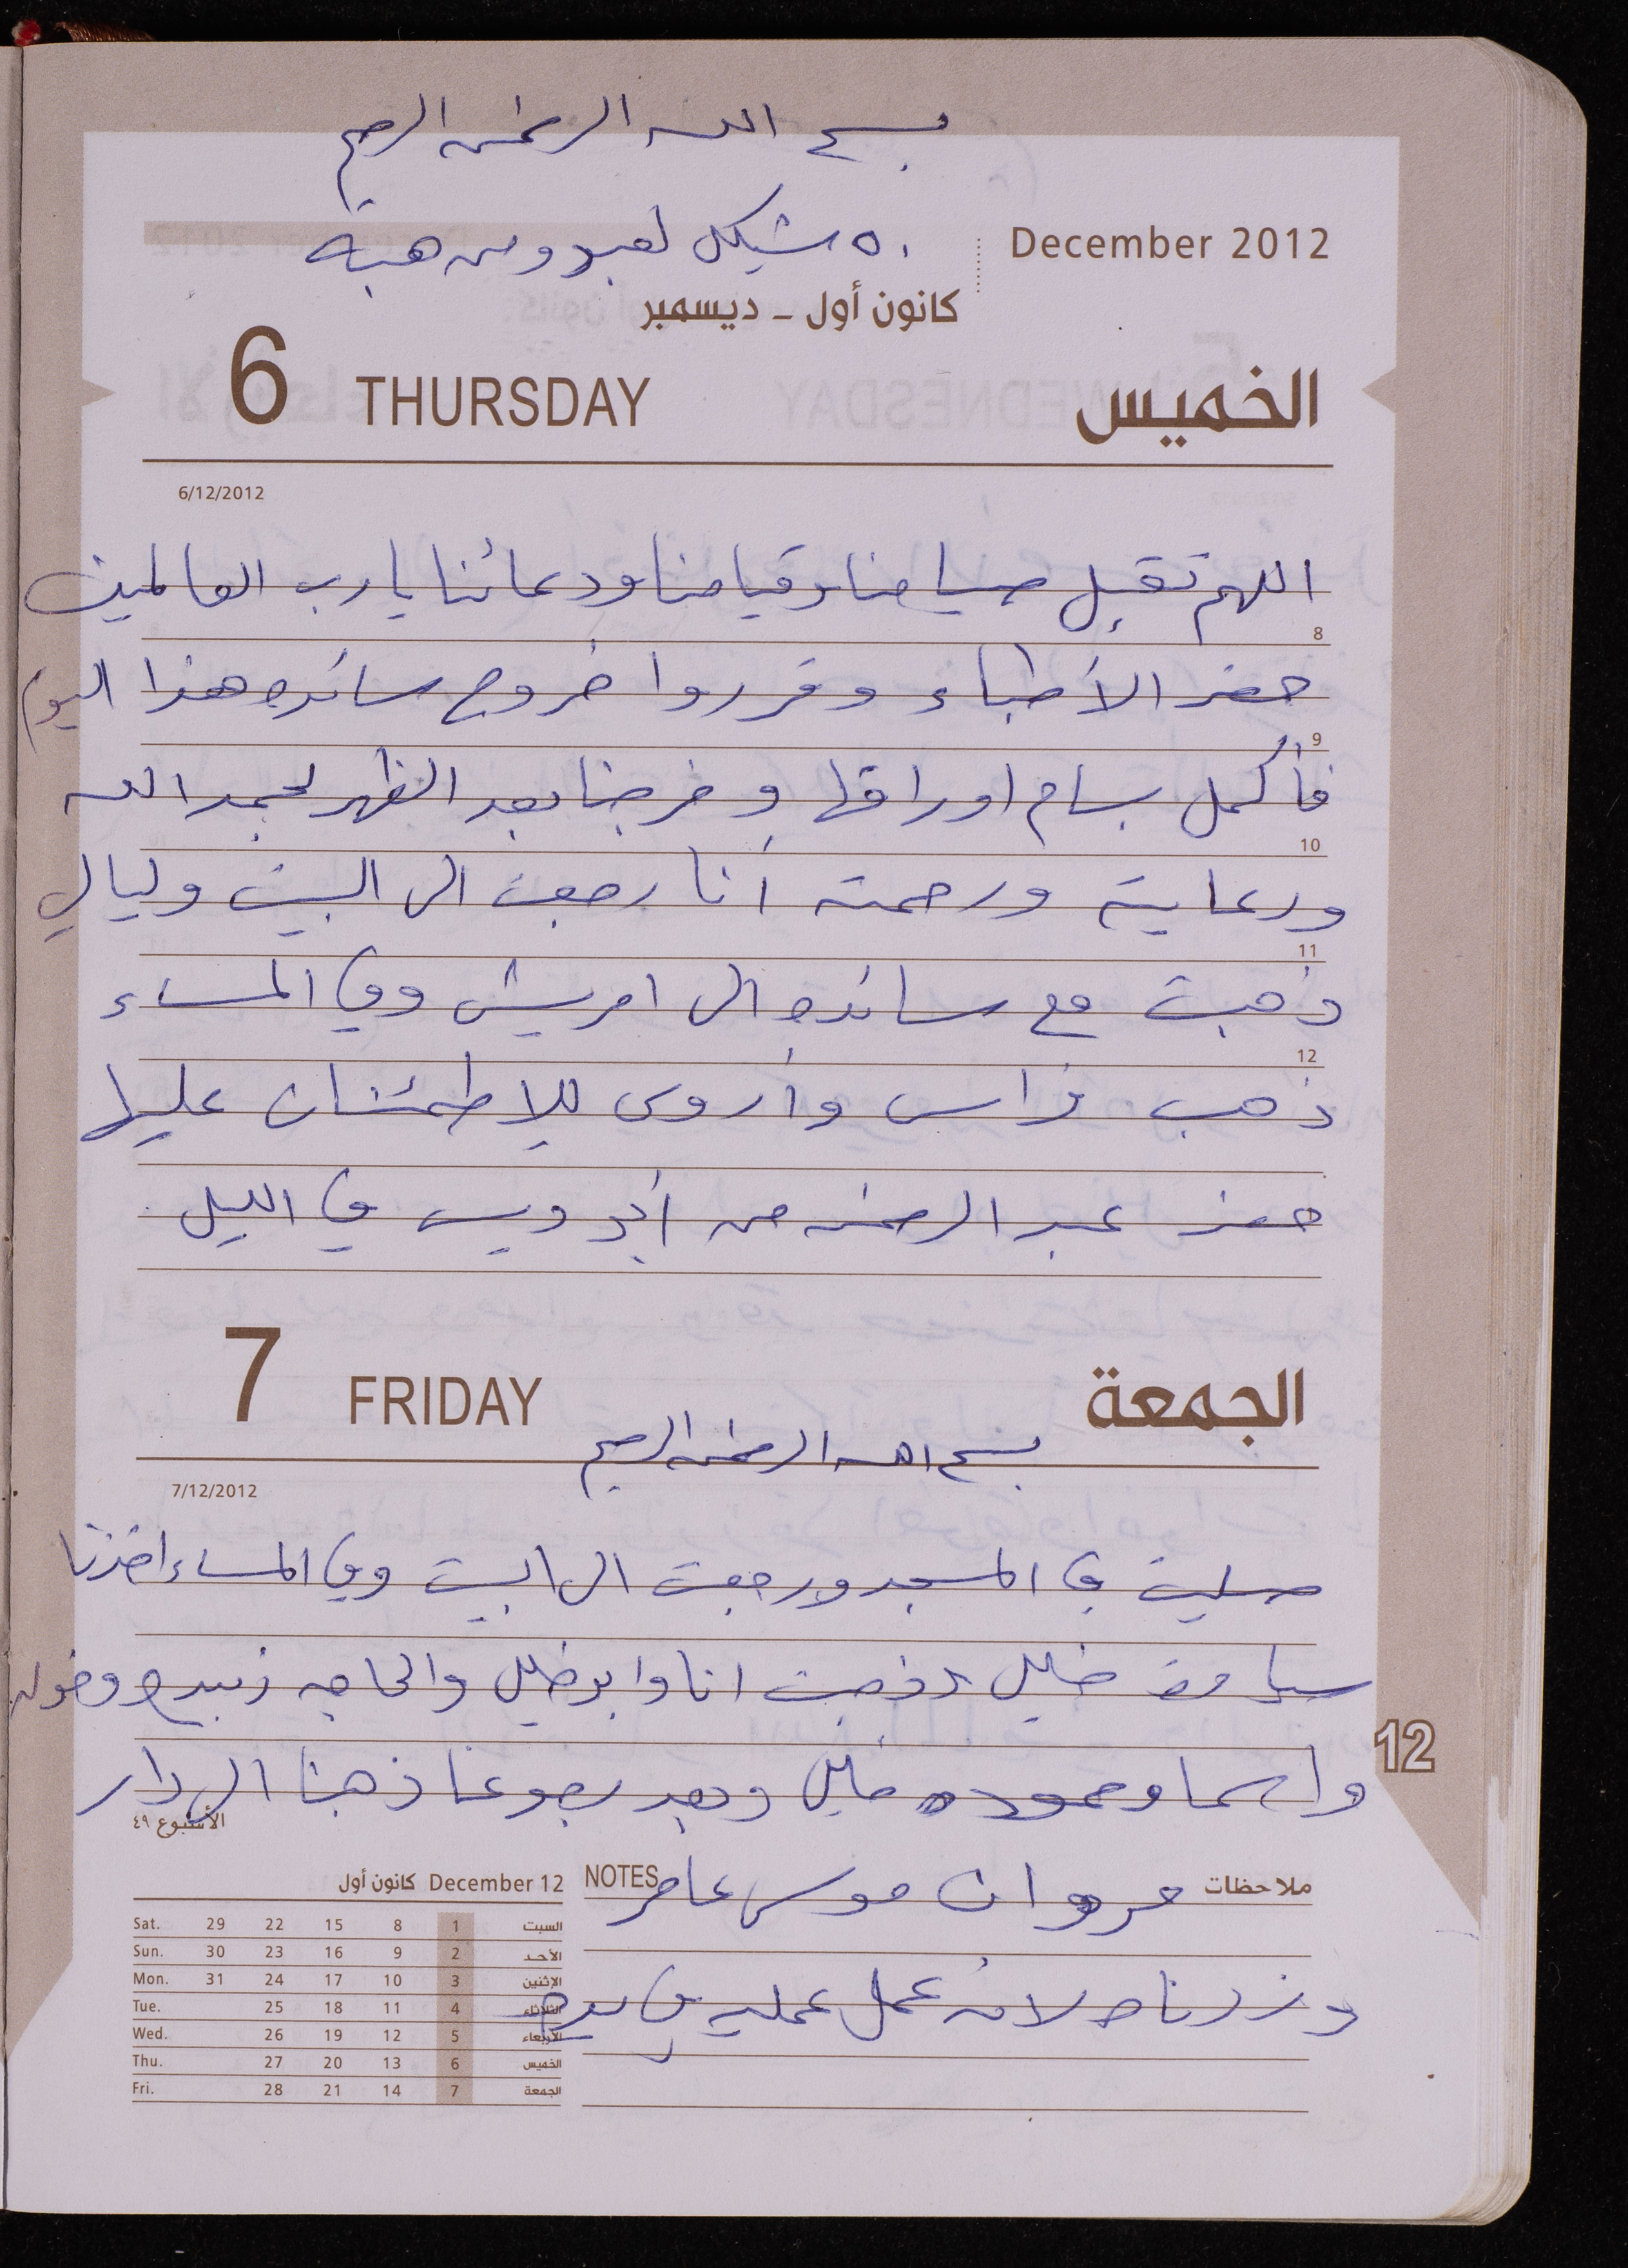 بسم الله الرحمن الرحيم
٥٠ شيكل لعبد ومن هبة
December 2012
كانون أول - ديسمبر
6 THURSDAY الخميس
6/12/2012
اللهم تقبل صيامنا وقيامنا ودعائنا يارب العالمين
8
حضر الأطباء وقرروا خروج سائده هذا اليوم
9
فأكمل بسام اوراقها وخرجنا بعد الظهر بحمد الله
10
ورعايته ورحمته أنا رجعت الى البيت وليالي
11
ذهبت مع سائده الى امريش وفي المساء
12
ذهب فراس وأروى للاطمئنان عليها
حضر عبد الرحمن من أبو ديس في الليل
7 FRIDAY الجمعة
بسم الله الرحمن الرحيم
7/12/2012
صليت في المسجد ورجعت الى البيت وفي المساء اخذنا
سيارة خليل وذهبت انا وابو خليل والحاجه زبيده وخوله
12
واسما وحموده خليل وبعد رجوعنا ذهبنا الى دار
الأسبوع ٤٩
ملاحظات NOTES
مروان موسى عامر
وزرناه لانه عمل عمليه في يده
December 12 كانون أول
Sat. 29 22 15 8 1 السبت
Sun. 30 23 16 9 2 الأحد
Mon. 31 24 17 10 3 الإثنين
Tue. 25 18 11 4 الثلاثاء
Wed. 26 19 12 5 الأربعاء
Thu. 27 20 13 6 الخميس
Fri. 28 21 14 7 الجمعة